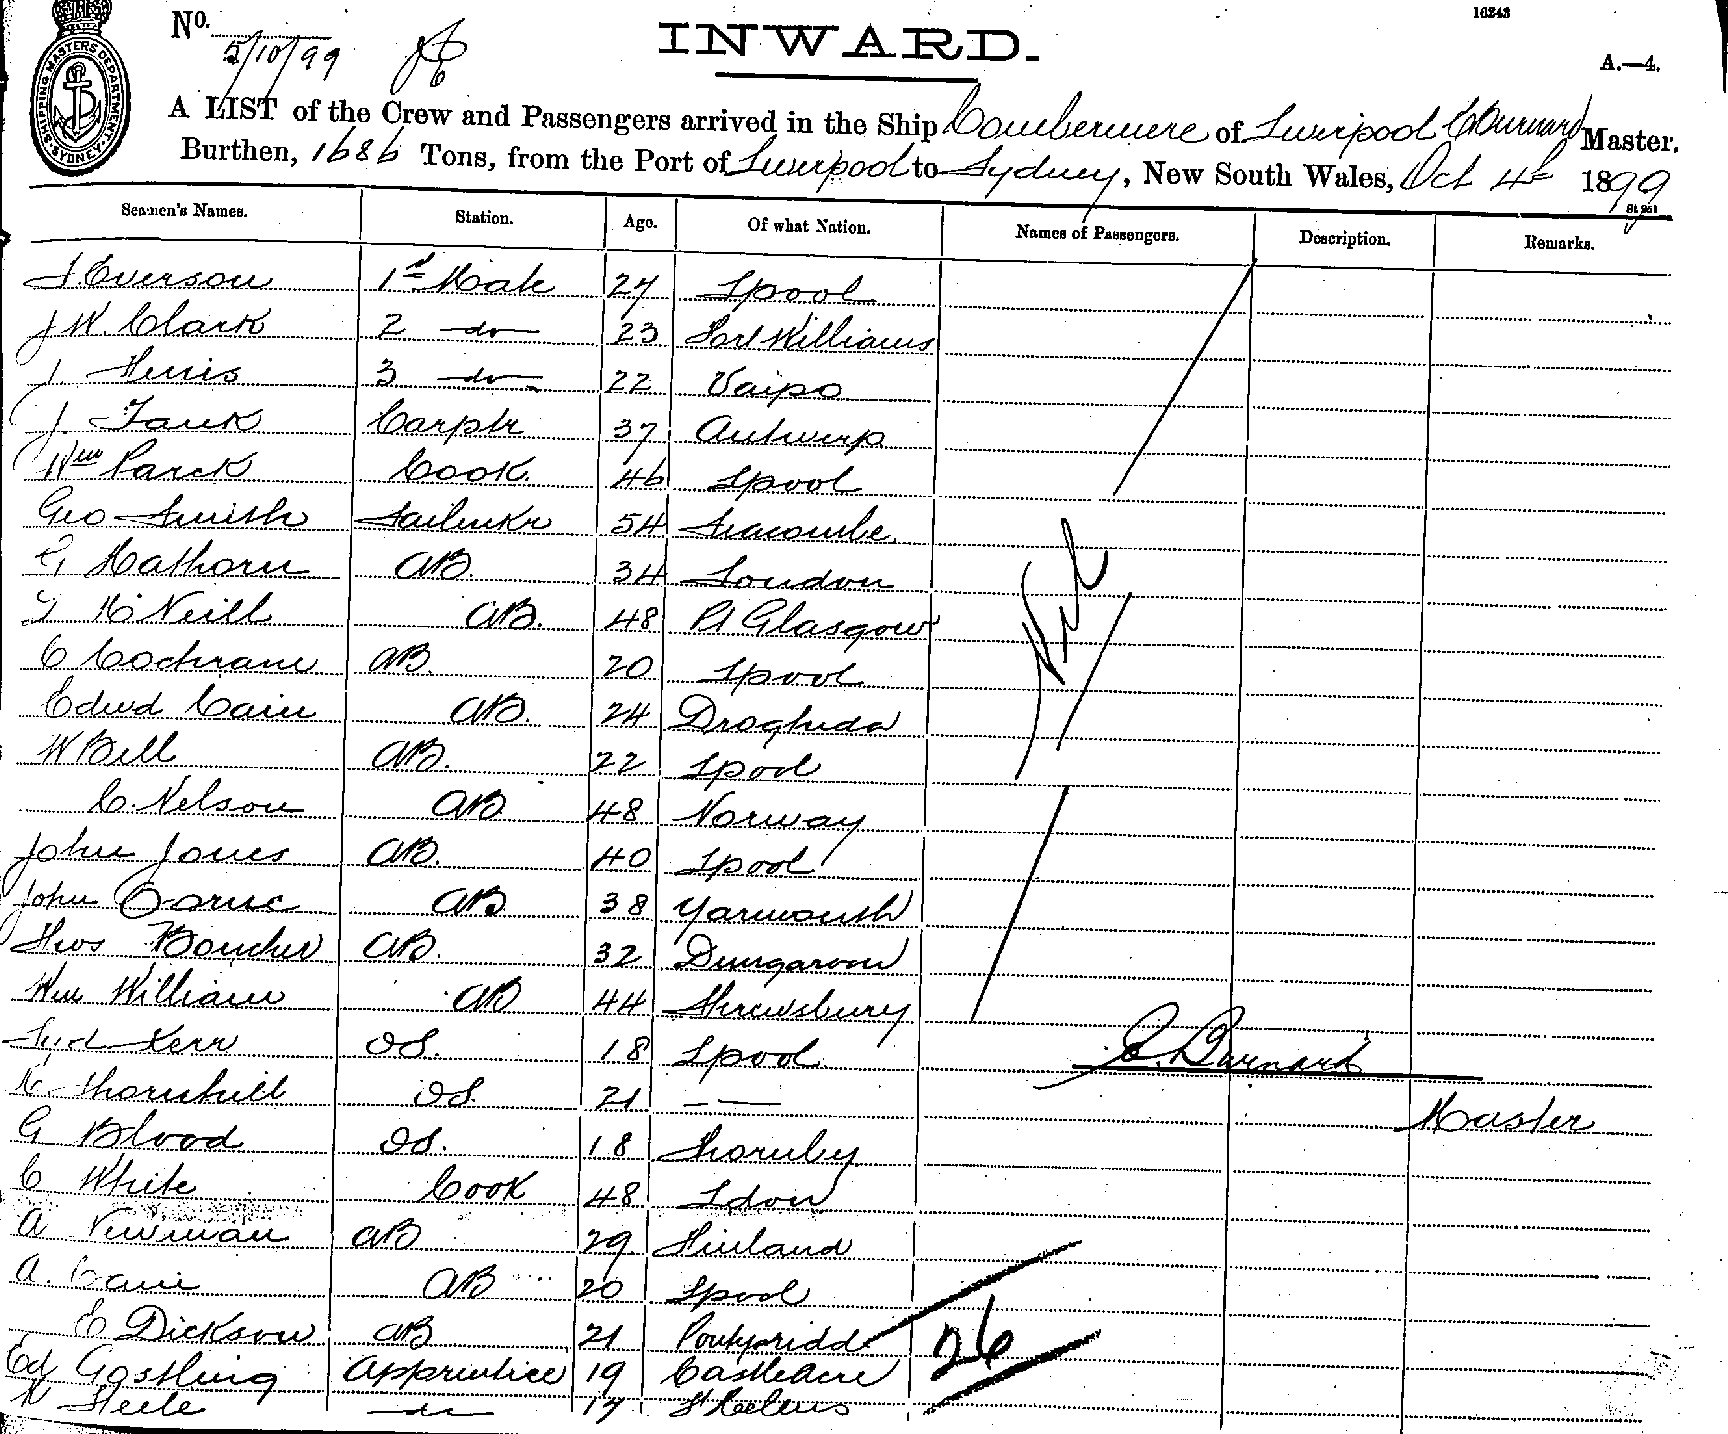 No. 5/10/99
INWARD.
16243
A.—4.
SHIPPING MASTERS DEPARTMENT SYDNEY
A LIST of the Crew and Passengers arrived in the Ship Combermere of Liverpool C Burnard Master.
Burthen, 1686 Tons, from the Port of Liverpool to Sydney, New South Wales, Oct 4th 1899
Seamen's Names. Station. Age. Of what Nation. Names of Passengers. Description. Remarks.
J. Everson 1st Mate 27 Lpool
J W. Clark 2 do 23 Fort Williams
J. 3 do 22 Vaipo
J. Tauk Carptr 37 Antwerp
Wm Parck Cook 46 Lpool
Geo Smith Sailmkr 54 Seacombe
G Mathorn AB. 34 London
McNeill AB. 48 Pt Glasgow
C Cochrane AB. 20 Lpool
Edwd Cain AB. 24 Drogheda
Nil
W Bell AB. 22 Lpool
C. Nelson AB 48 Norway
John Jones AB. 40 Lpool
John AB 38 Yarmouth
Thos Boucher AB. 32 Dungarvon
Wm William AB 44 Shrewsbury
Syd Kerr OS. 18 Lpool
C. Burnard
Thornhill OS. 21 — —
Master
G Blood OS. 18 Thornby
C White Cook 48 Ldon
A Newman AB 29 Finland
A. Cain AB 20 Lpool
E Dickson AB 21 Pontypridd
26
Ed Gostling Apprentice 19 Castleacre
Steele do 17 St Helens